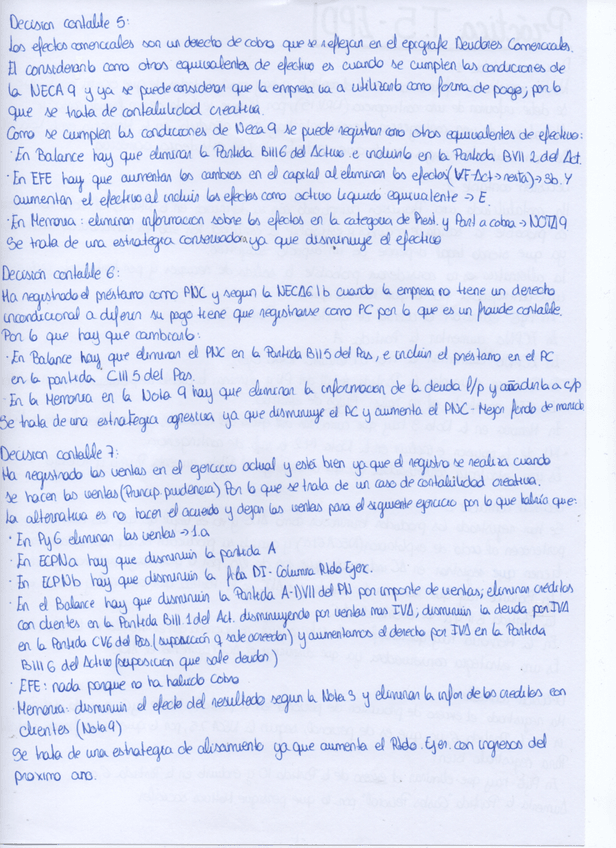 Decision contable 5:
Los efectos comerciales son un derecho de cobro que se reflejan en el epígrafe Deudores Comerciales.
El considerarlo como otros equivalentes de efectivo es cuando se cumplen las condiciones de
la NECA 9 y ya se puede considerar que la empresa va a utilizarlo como forma de pago; por lo
que se trata de contabilidad creativa.
Como se cumplen las condiciones de Neca 9 se puede registrar como otros equivalentes de efectivo:
· En Balance hay que eliminar la Partida BIII6 del Activo e incluirlo en la Partida BVII 2 del Act.
· En EFE hay que aumentar los cambios en el capital al eliminar los efectos (VF Act → resta) → 3b. Y
aumentan el efectivo al incluir los efectos como activo liquido equivalente → E.
· En Memoria: eliminar informacion sobre los efectos en la categoria de Prest. y Part a cobrar → NOTA 9
Se trata de una estrategia conservadora ya que disminuye el efectivo
Decisión contable 6:
Ha registrado el préstamo como PNC y segun la NECA6 1b cuando la empresa no tiene un derecho
incondicional a diferir su pago tiene que registrarse como PC por lo que es un fraude contable.
Por lo que hay que cambiarlo:
· En Balance hay que eliminar el PNC en la Partida BII5 del Pas, e incluir el préstamo en el PC
en la partida CIII5 del Pas.
· En la Memoria en la Nota 9 hay que eliminar la informacion de la deuda l/p y añadirla a c/p
Se trata de una estrategia agresiva ya que disminuye el PC y aumenta el PNC - Mejor fondo de maniob
Decision contable 7:
Ha registrado las ventas en el ejercicio actual y está bien ya que el registro se realiza cuando
se hacen las ventas (Princip. prudencia) Por lo que se trata de un caso de contabilidad creativa.
La alternativa es no hacer el acuerdo y dejar las ventas para el siguiente ejercicio por lo que habría que:
· En PyG eliminar las ventas → 1.a
· En ECPNa hay que disminuir la partida A
· En ECPNb hay que disminuir la fila DI - Columna Rtdo Ejerc.
· En el Balance hay que disminuir la Partida A-DVII del PN por importe de ventas; eliminar créditos
con clientes en la Partida BIII.1 del Act. disminuyendo por ventas mas IVA; disminuir la deuda por IVA
en la Partida CV6 del Pas. (suposición q sale acreedor) y aumentamos el derecho por IVA en la Partida
BIII6 del Activo (suposicion que sale deudor)
· EFE: nada porque no ha habido cobro
· Memoria: disminuir el efecto del resultado segun la Nota 3 y eliminar la infor de los creditos con
clientes (Nota 9)
Se trata de una estrategia de alisamiento ya que aumenta el Rtdo. Ejer. con ingresos del
proximo ano.